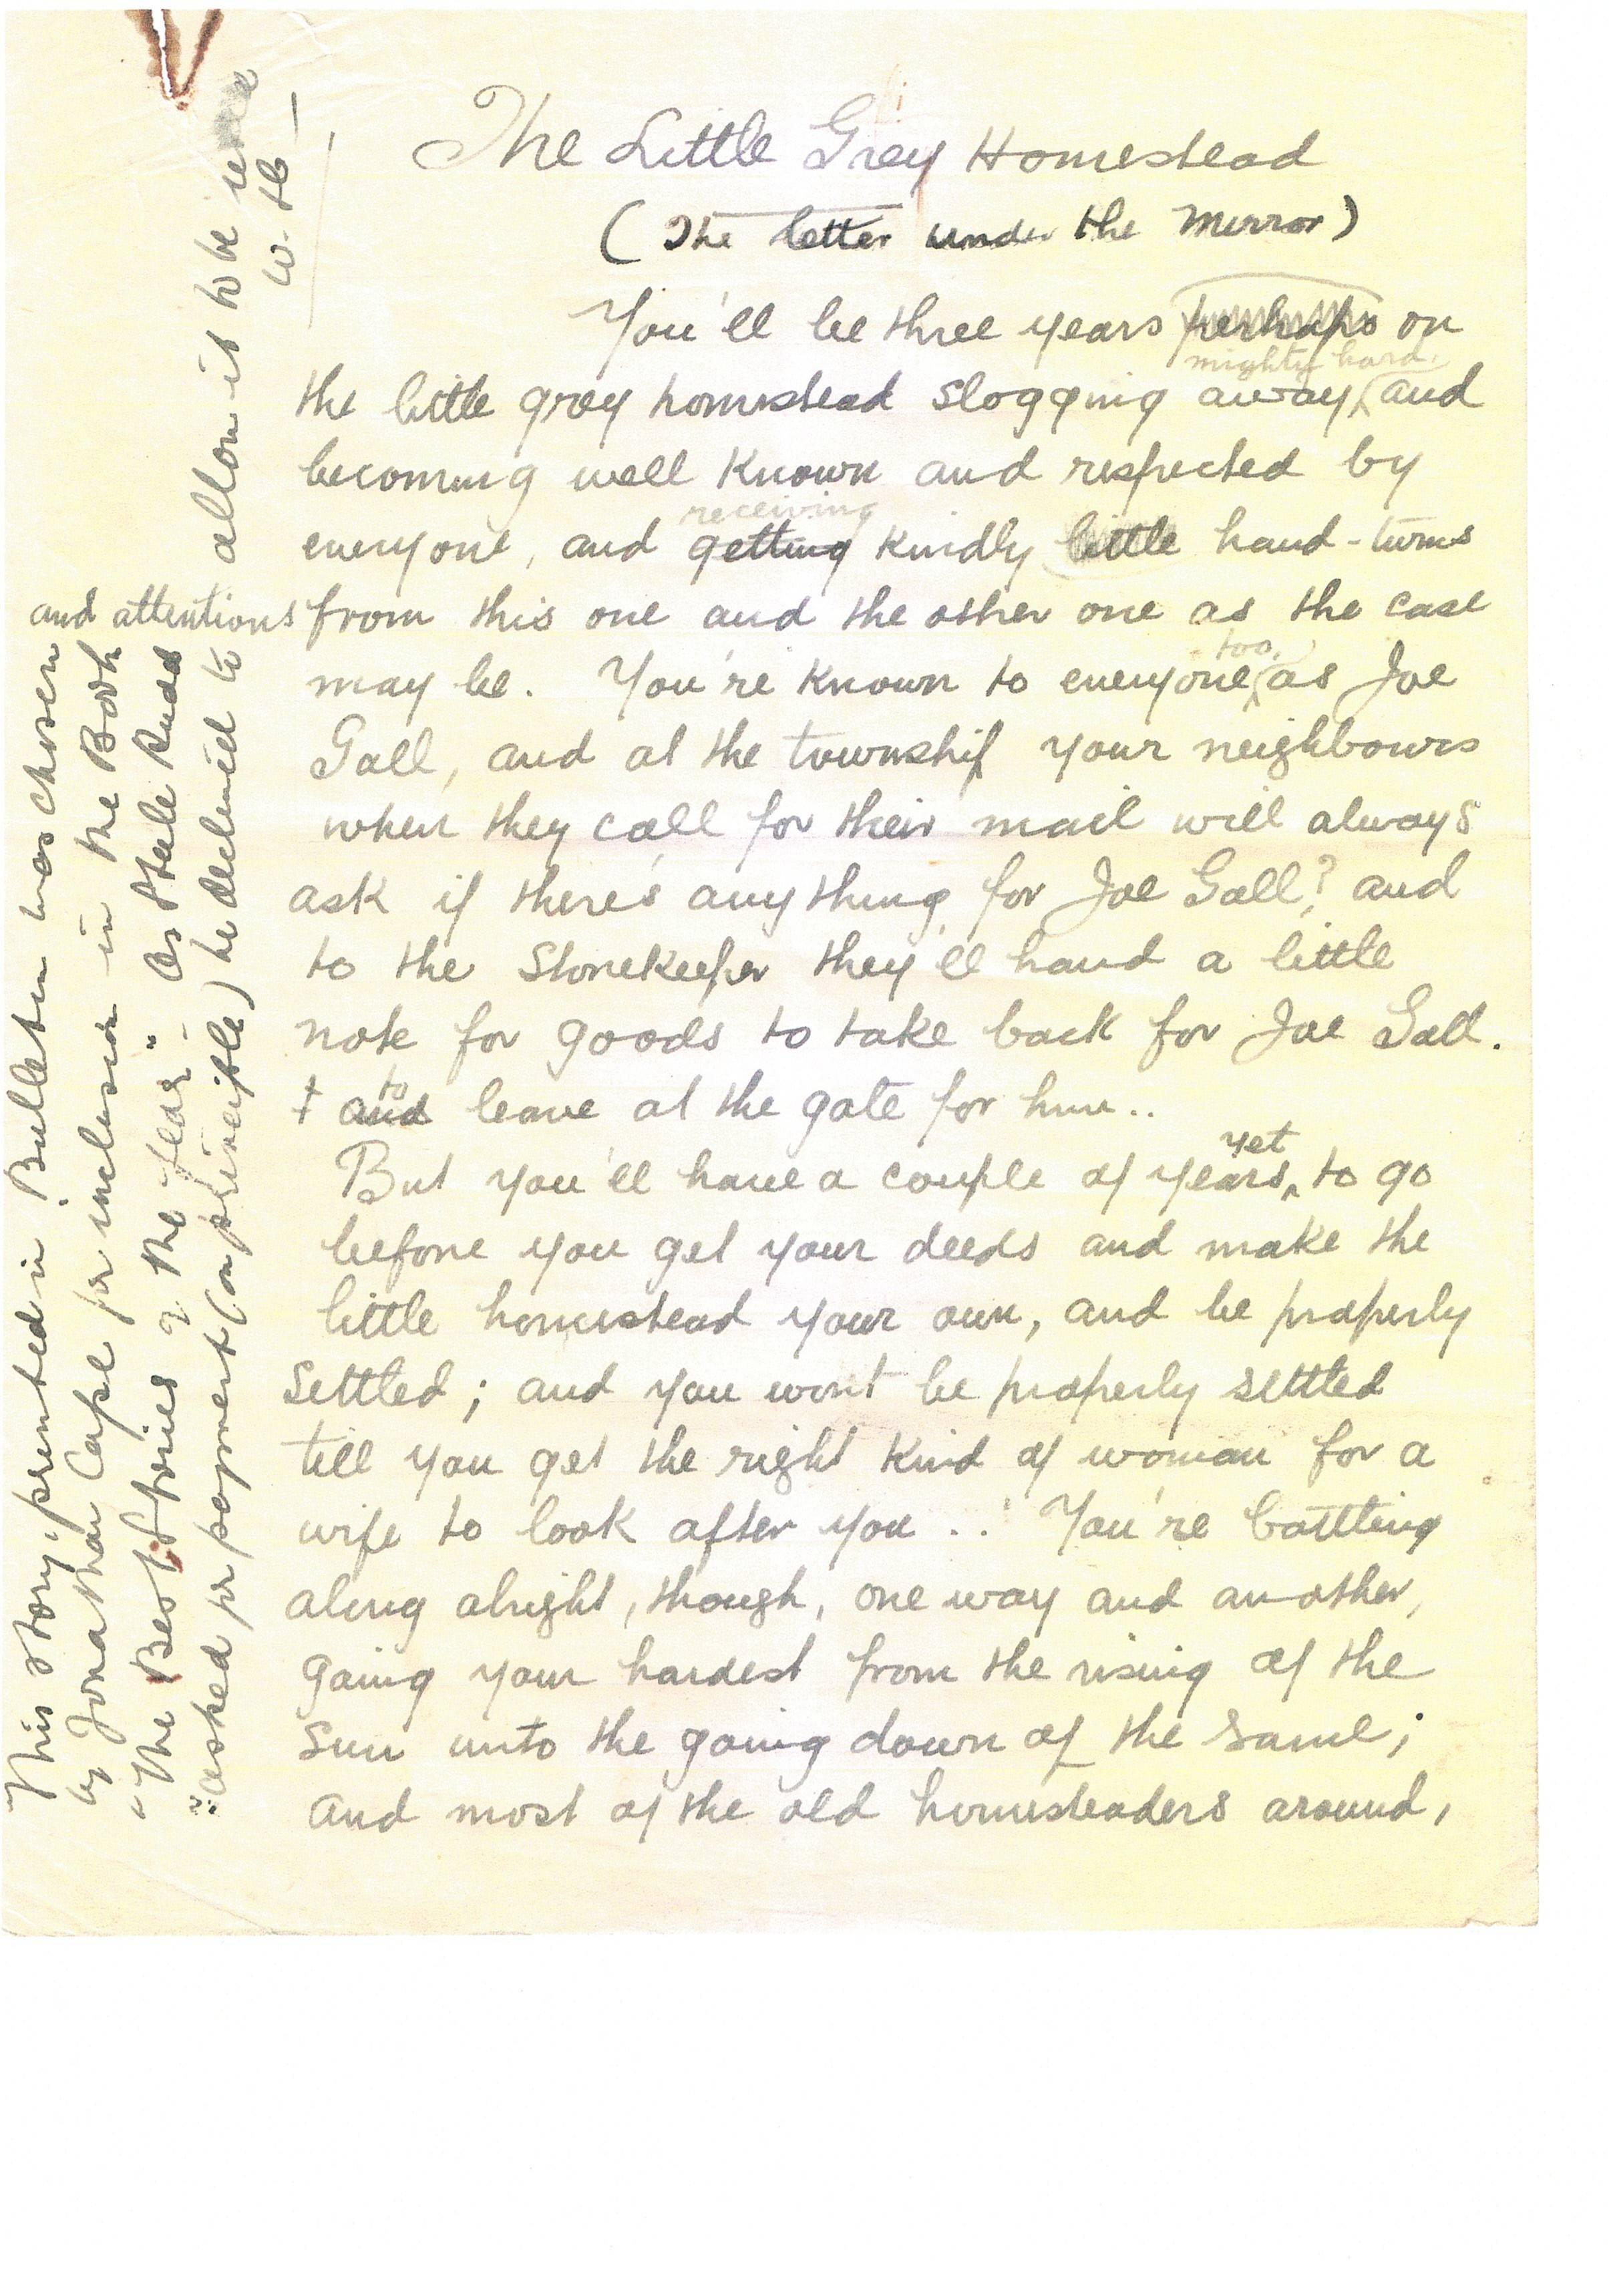 The Little Grey Homestead
(The letter under the Mirror)
You'll be three years perhaps on
mighty hard,
the little grey homestead slogging away, and
becoming well known and respected by
receiving
everyone, and getting kindly little hand-turns
and attentions from this one and the other one as the case
too,
may be. You're known to everyone, as Joe
Gall, and at the township your neighbours
when they call for their mail will always
ask if there's anything for Joe Gall? and
to the Storekeeper they'll hand a little
note for goods to take back for Joe Gall.
to
+ and leave at the gate for him..
yet
But you'll have a couple of years, to go
before you get your deeds and make the
little homestead your own, and be properly
settled; and you wont be properly settled
till you get the right kind of woman for a
wife to look after you .. You're battling
along alright, though, one way and another,
going your hardest from the rising of the
sun unto the going down of the same;
and most of the old homesteaders around,
This story, printed in Bulletin was chosen
by Jonathan Cape for inclusion in the Book
"The Best Stories of the Year" - As Steele Rudd
asked for payment (on principle) he declined to allow it to be